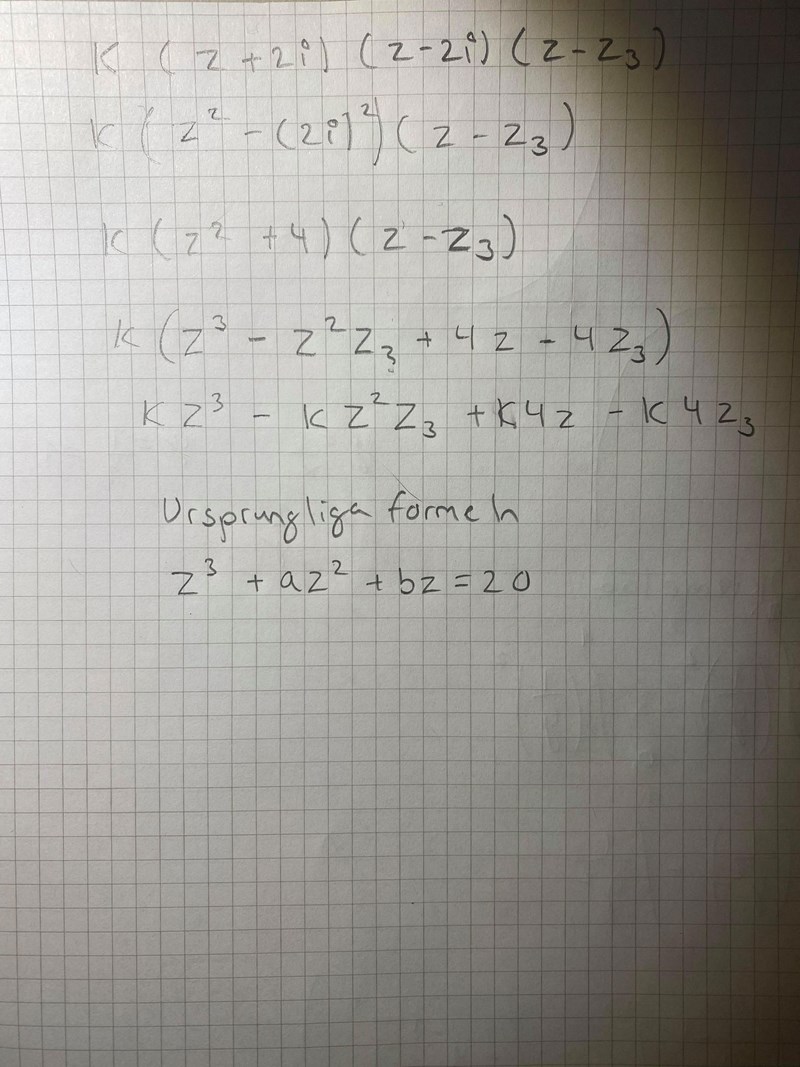 K (z+2i) (z-2i) (z-z₃)
K (z² - (2i)²) (z - z₃)
K (z² +4) (z -z₃)
K (z³ - z²z₃ + 4z - 4z₃)
Kz³ - Kz²z₃ +K4z - K4z₃
Ursprungliga formeln
z³ + az² + bz = 20